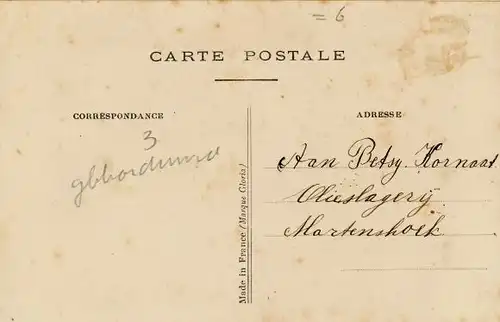 = 6
CARTE POSTALE
CORRESPONDANCE
3
ADRESSE
Aan Betsy Kornaat
Olieslagery
Martenshoek
Made in France (Marque Gloria)